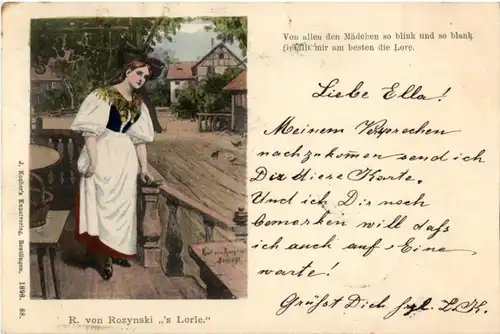 Von allen den Mädchen so blink und so blank
Gefällt mir am besten die Lore.
Liebe Ella!
Meinem Versprechen
nachzukommen send ich
Dir diese Karte.
Und ich Dir noch
bemerken will daß
ich auch auf Eine
warte!
Grüßt Dich L. K.
J. Kocher's Kunstverlag, Reutlingen. 1898. 88.
R. von Rozynski „'s Lorle.“